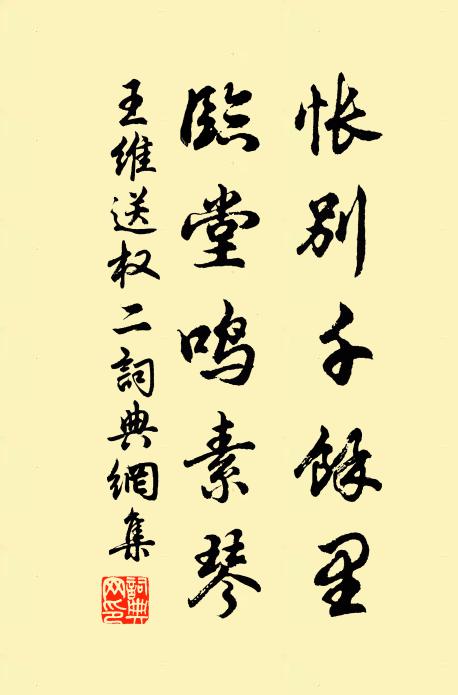 怅别千餘里
臨堂鸣素琴
王维送权二詞典網集
詞典网印